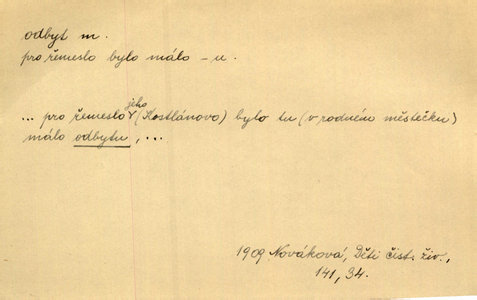 odbyt m.
pro řemeslo bylo málo – u.
... pro řemeslo jeho (Kostlánovo) bylo tu (v rodném městečku)
málo odbytu, ...
1909 Nováková, Děti čist. živ.,
141, 34.